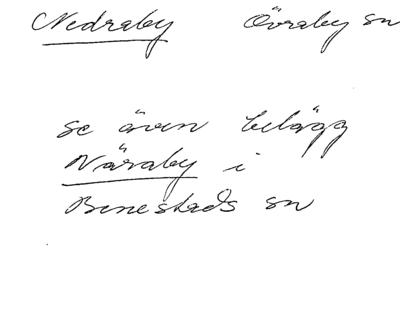 Nedraby Övraby sn
se även belägg
Näraby i
Benestads sn